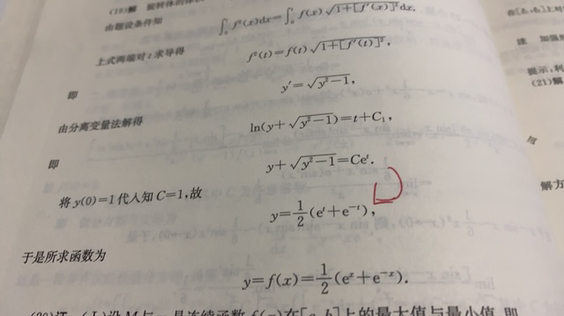 (19)解 旋转体的体
由题设条件知
∫₀ᵗ f²(x)dx=∫₀ᵗ f(x)√(1+[f′(x)]²)dx,
上式两端对 t 求导得 f²(t)=f(t)√(1+[f′(t)]²),
即 y′=√(y²−1),
由分离变量法解得 ln(y+√(y²−1))=t+C₁,
即 y+√(y²−1)=Ceᵗ.
将 y(0)=1代入知 C=1,故
y=1/2(eᵗ+e⁻ᵗ),
于是所求函数为
y=f(x)=1/2(eˣ+e⁻ˣ).
在[
上对
注
提示,利
(21)解
令
解方